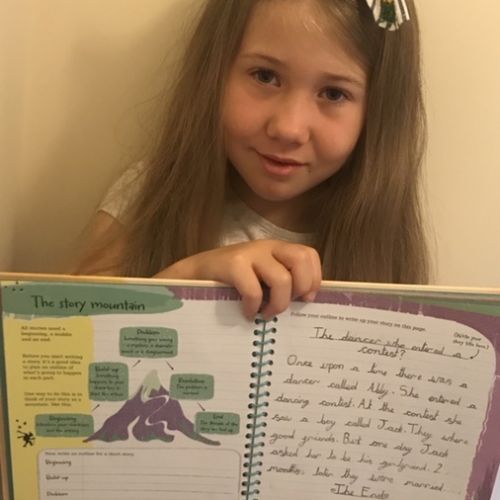 The story mountain
All stories need a
beginning, a middle
and an end.
Before you start writing
a story, it's a good idea
to plan an outline of
what's going to happen
in each part.
One way to do this is to
think of your story as a
mountain, like this.
Problem
Something goes wrong
Build-up
Something
happens
Resolution
The problem is
End
Beginning
Now write an outline for a short story.
Beginning
Build-up
Problem
Follow your outline to write up your story on this page.
(Write your
story title here.)
The dancer who entered a
contest?
Once upon a time there was a
dancer called Abby. She entered a
dancing contest. At the contest she
saw a boy called Jack. They where
good friends. But one day Jack
asked her to be his girlfriend. 2
months later they were married.
-The End-